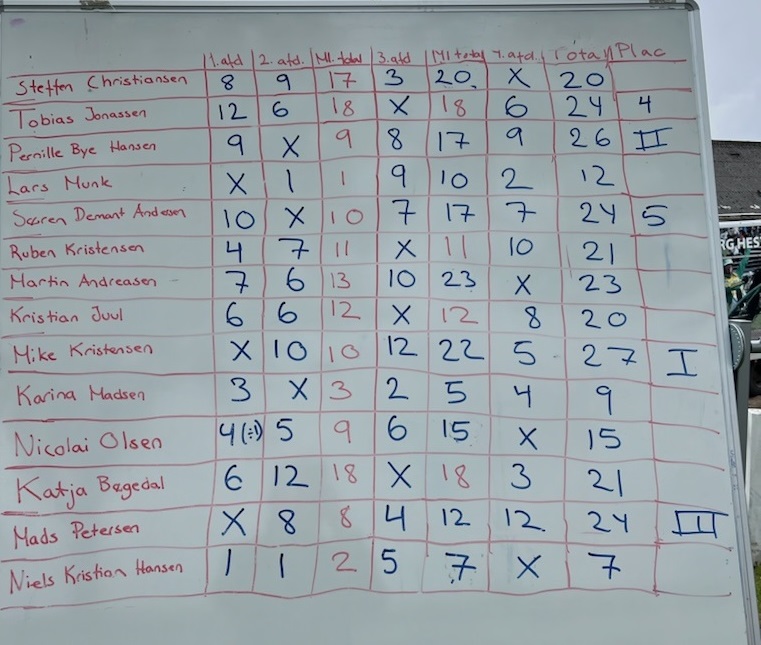 1. afd 2. afd. Ml. total 3. afd Ml total 4. afd. Total Plac
Steffen Christiansen 8 9 17 3 20. X 20
Tobias Jonassen 12 6 18 X 18 6 24 4
Pernille Bye Hansen 9 X 9 8 17 9 26 II
Lars Munk X 1 1 9 10 2 12
Søren Demant Andersen 10 X 10 7 17 7 24 5
Ruben Kristensen 4 7 11 X 11 10 21
Martin Andreasen 7 6 13 10 23 X 23
Kristian Juul 6 6 12 X 12 8 20
Mike Kristensen X 10 10 12 22 5 27 I
Karina Madsen 3 X 3 2 5 4 9
Nicolai Olsen 4(:-) 5 9 6 15 X 15
Katja Bøgedal 6 12 18 X 18 3 21
Mads Petersen X 8 8 4 12 12. 24 III
Niels Kristian Hansen 1 1 2 5 7 X 7
RG HES